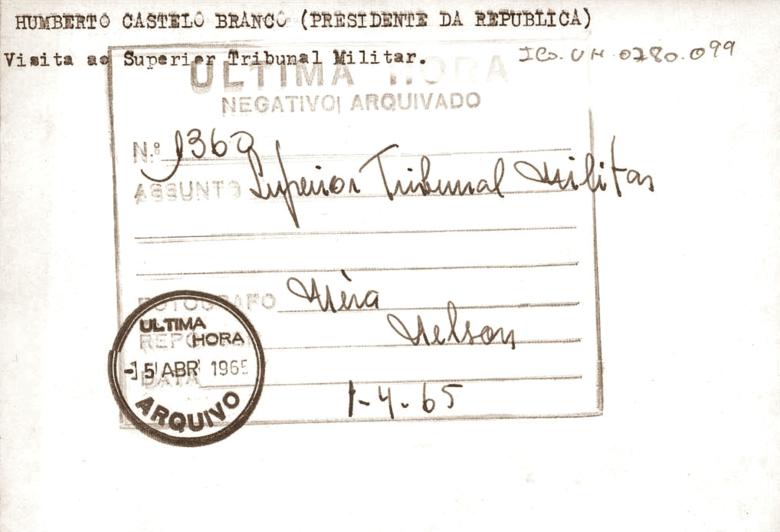 HUMBERTO CASTELO BRANCO (PRESIDENTE DA REPUBLICA)
Visita ao Superior Tribunal Militar.
ICO.UH.0280.099
ULTIMA HORA
NEGATIVO ARQUIVADO
N.º 1360
ASSUNTO Superior Tribunal Militar
FOTOGRAFO
REPORTER Nelson
DATA 1-4-65
ULTIMA
HORA
5 ABR 1965
ARQUIVO